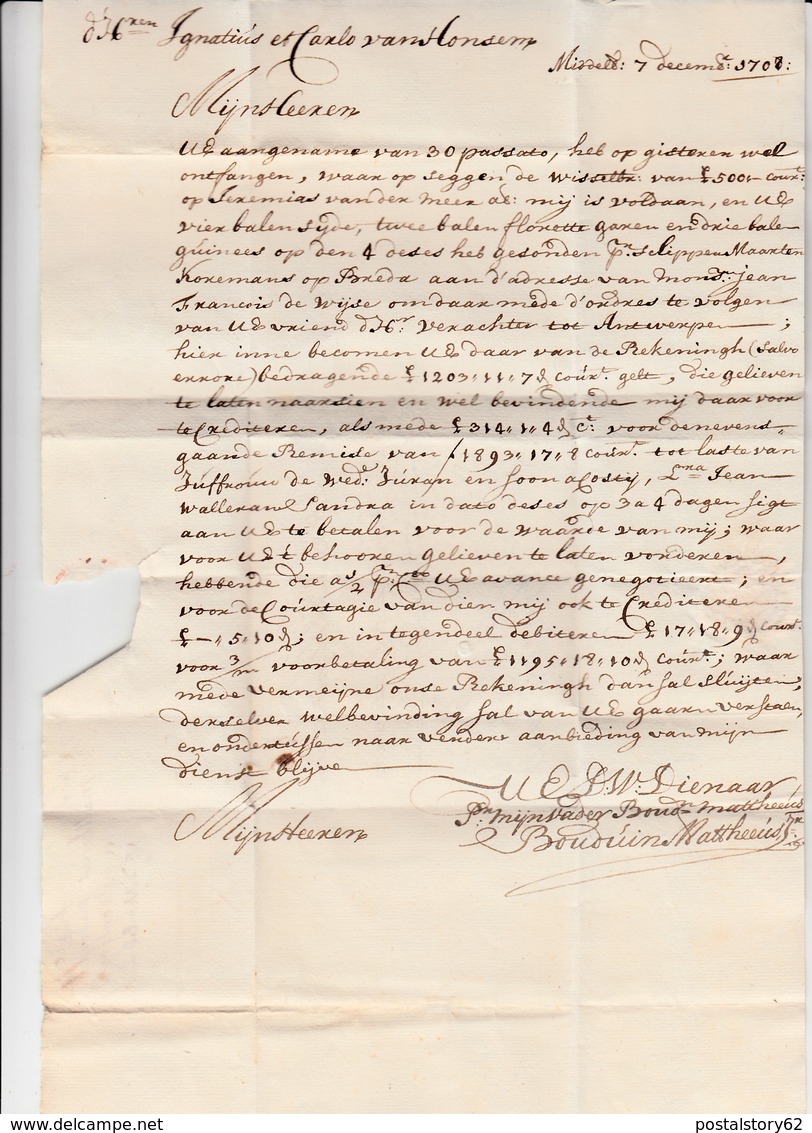 d'H^ren Ignatius et Carlo van Honsem
Middelb: 7 decemb^r: 1708:
MijnHeeren
UE aangename van 30 passato, heb op gisteren wel
ontfangen, waar op seggen de wisselbr: van £500,- cour^t:
op Jeremias van der Meer a/: mij is voldaan, en UE
vier balen syde, twee balen florette garen en drie bale
guinees op den 4 deses heb gesonden p^r schipper Maarten
Koremans op Breda aan d'adresse van Mons^r: Jean
Francois de Wijse om daar mede d'ordres te volgen
van UE vriend d'H^r: Verachter tot Antwerpen ;
hier inne becomen UE daar van de Rekeningh (salvo
errore) bedragende £1203„11„7₰ cour^t: gelt, die gelieven
te laten naarsien en wel bevindende mij daar voor
te Crediteren, als mede £314„1„4₰ C^t: voor de nevens
gaande Remise van ƒ1893„17„8 cour^t: tot laste van
Juffrouw de Wed^e: Juran en soon a Costij, L^na Jean
Walleran Sandra in dato deses op 3 a 4 dagen sigt
aan UE te betalen voor de waarde van mij; waar
voor UE 't behooren gelieven te laten vorderen,
hebbende die a 5/2 p^r C^to UE avance genegotieert; en
voor de Courtagie van dien mij ook te Crediteren
£—„5„10₰; en in tegendeel debiteren £17„18„9₰ cour^t:
voor 3/m voorbetaling van £1195„18„10₰ cour^t:; waar
mede vermeijne onse Rekeningh dan sal sluijten,
derselver welbevinding sal van UE gaarn verstaen,
en ondertussen naar verdere aanbieding van mijn
dienst blijve
UE D:W: Dienaar
MijnHeeren
P^r mijn Vader Boud^n Mattheeus
Bouduin Mattheeus J^r
postalstory62
www.delcampe.net